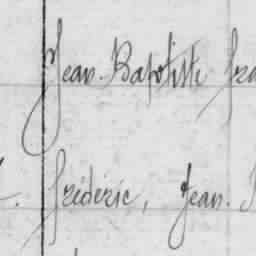 Jean-Baptiste
Frédéric, Jean-